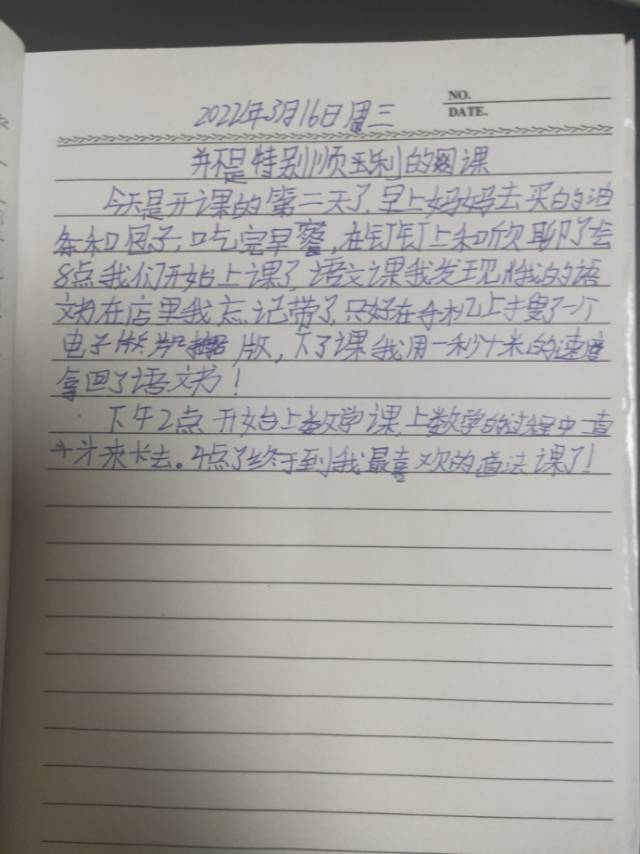 NO.
DATE.
2022年3月16日周三
并不是特别顺利的网课
今天是开课的第三天了,早上妈妈去买的油
条和包子,吃完早餐,在钉钉上和欣聊了会
8点我们开始上课了,语文课我发现我的语
文书在店里我忘记带了,只好在手机上搜了一个
电子版,下了课我用一秒十米的速度
拿回了语文书!
下午2点开始上数学课,上数学的过程中一直
卡来卡去。4点了终于到我最喜欢的道法课了!